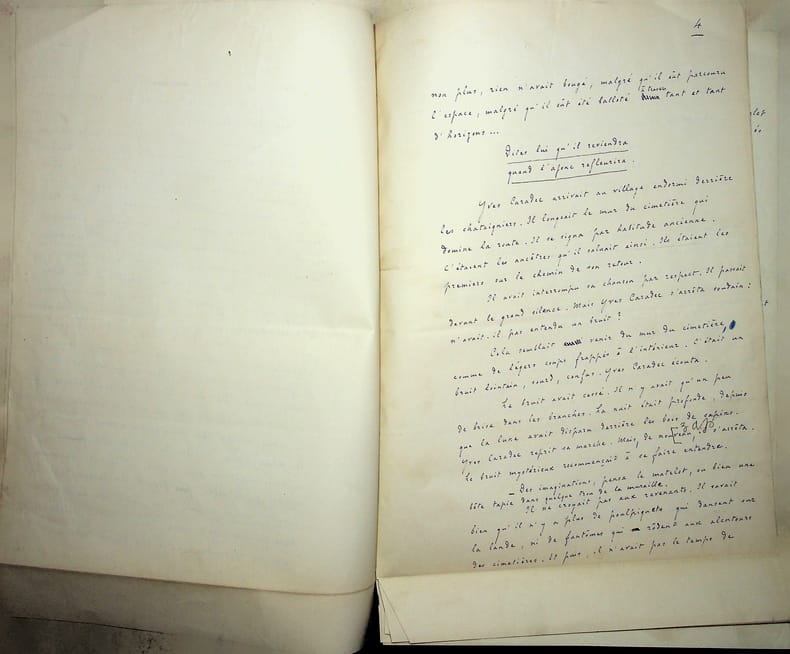 4
non plus, rien n'avait bougé, malgré qu'il eût parcouru
l'espace, malgré qu'il eût été balloté à travers tant et tant
d'horizons...
Dites lui qu'il reviendra
quand l'ajonc refleurira.
Yves Caradec arrivait au village endormi derrière
les chataigniers. Il longeait le mur du cimetière qui
domine la route. Il se signa par habitude ancienne.
C'étaient les ancêtres qu'il saluait ainsi. Ils étaient les
premiers sur le chemin de son retour.
Il avait interrompu sa chanson par respect. Il passait
devant le grand silence. Mais Yves Caradec s'arrêta soudain :
n'avait-il pas entendu un bruit ?
Cela semblait venir du mur du cimetière,
comme de légers coups frappés à l'intérieur. C'était un
bruit lointain, sourd, confus. Yves Caradec écouta.
Le bruit avait cessé. Il n'y avait qu'un peu
de brise dans les branches. La nuit était profonde, depuis
que la lune avait disparu derrière les bois de sapins.
Yves Caradec reprit sa marche. Mais, de nouveau, il s'arrêta.
Le bruit mystérieux recommençait à se faire entendre.
— Des imaginations, pensa le matelot, ou bien une
bête tapie dans quelque trou de la muraille.
Il ne croyait pas aux revenants. Il savait
bien qu'il n'y a plus de poulpiquets qui dansent sur
la lande, ni de fantômes qui rôdent aux alentours
des cimetières. Et puis, il n'avait pas le temps de